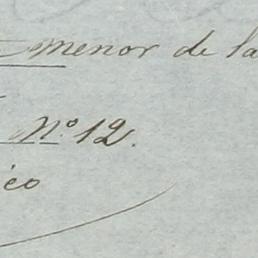 menor de la
Nº 12.
ico